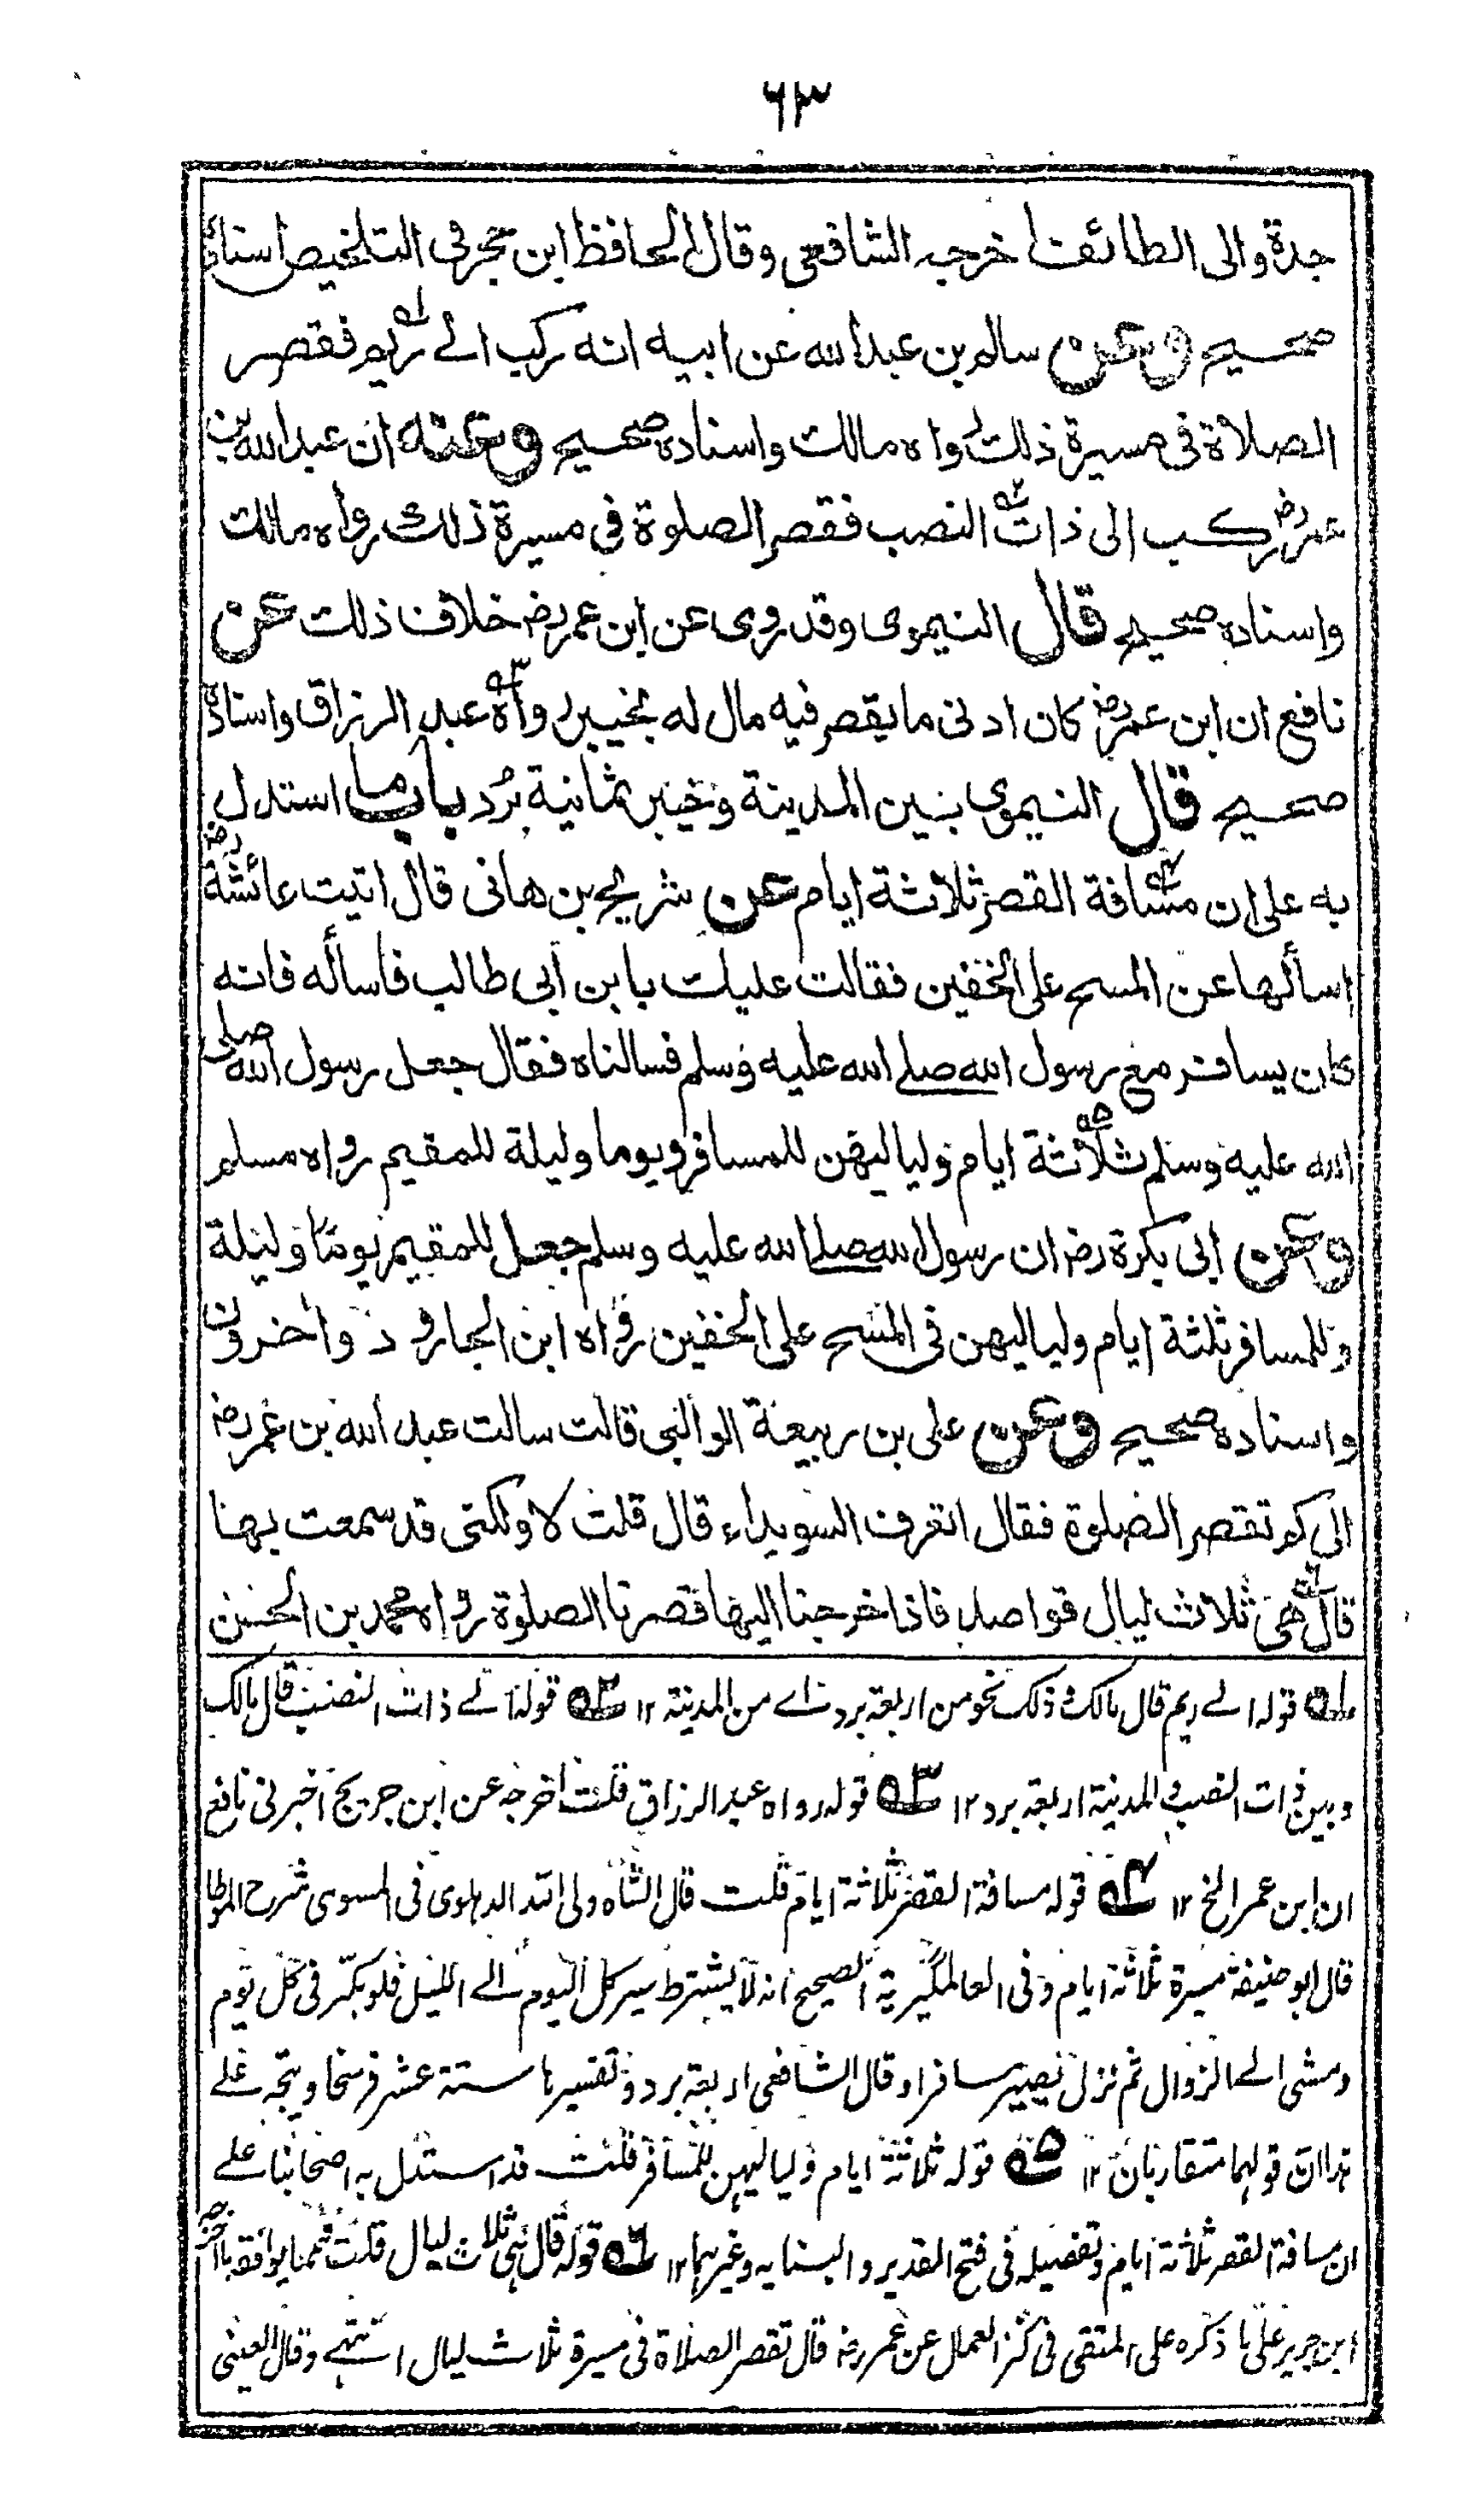 ٦٣
جدة والى الطائف اخرجه الشافعى وقال الحافظ ابن حجر فى التلخيص اسناده
صحيح وعن سالم بن عبد الله عن ابيه انه ركب الے ريم ١؎ فقصر
الصلاة فى مسيرة ذلك رواه مالك واسناده صحيح وعنه ان عبد الله بن
عمر رض ركب الى ذات ٢؎ النصب فقصر الصلوة فى مسيرة ذلك رواه مالك
واسناده صحيح قال النيموى وقد روى عن ابن عمر رض خلاف ذلك عن
نافع ان ابن عمر رض كان ادنى ما يقصر فيه مال له بخيبر رواه ٣؎ عبد الرزاق واسناده
صحيح قال النيموى بين المدينة وخيبر ثمانية بُرُد باب ما استدل
به على ان مسافة ٤؎ القصر ثلاثة ايام عن شريح بن هانى قال اتيت عائشة رض
اسألها عن المسح على الخفين فقالت عليك بابن ابى طالب فاسأله فانه
كان يسافر مع رسول الله صلے الله عليه وسلم فسالناه فقال جعل رسول الله صلى
الله عليه وسلم ثلاثة ٥؎ ايام ولياليهن للمسافر ويوما وليلة للمقيم رواه مسلم
وعن ابى بكرة رض ان رسول الله صلے الله عليه وسلم جعل للمقيم يوما وليلة
وللمسافر ثلثة ايام ولياليهن فى المسح على الخفين رواه ابن الجارود واخرون
واسناده صحيح وعن على بن ربيعة الوالبى قالت سالت عبد الله بن عمر رض
الى كم تقصر الصلوة فقال اتعرف السويداء قال قلت لا ولكنى قد سمعت بها
قال ٦؎ هى ثلاث ليال قواصد فاذا خرجنا اليها قصرنا الصلوة رواه محمد بن الحسن
١؎ قوله الے ريم قال مالك وذلك نحو من اربعة برد اے من المدينة ١٢ ٢؎ قوله الے ذات النصب قال مالك
وبين ذات النصب والمدينة اربعة برد ١٢ ٣؎ قوله رواه عبد الرزاق قلت اخرجه عن ابن جريج اخبرنى نافع
ان ابن عمر الخ ١٢ ٤؎ قوله مسافة القصر ثلاثة ايام قلت قال الشاه ولى الله الدهلوى فى المسوى شرح الموطا
قال ابو حنيفة مسيرة ثلاثة ايام وفى العالمگيرية الصحيح انه لا يشترط سير كل اليوم الے الليل فلو بكر فى كل يوم
ومشى الے الزوال ثم نزل يصير مسافرا وقال الشافعى اربعة برد وتفسيرها ستة عشر فرسخا ويتجه علے
هذا ان قولهما متقاربان ١٢ ٥؎ قوله ثلاثة ايام ولياليهن للمسافر قلت قد استدل به اصحابنا علے
ان مسافة القصر ثلاثة ايام وتفصيله فى فتح القدير والبنايه وغيرهما ١٢ ٦؎ قوله قال هى ثلاث ليال قلت ومما يوافقه ما اخرجه
ابن جرير على ما ذكره على المتقى فى كنز العمال عن عمر رض قال تقصر الصلاة فى مسيرة ثلاث ليال انتهے وقال العينى